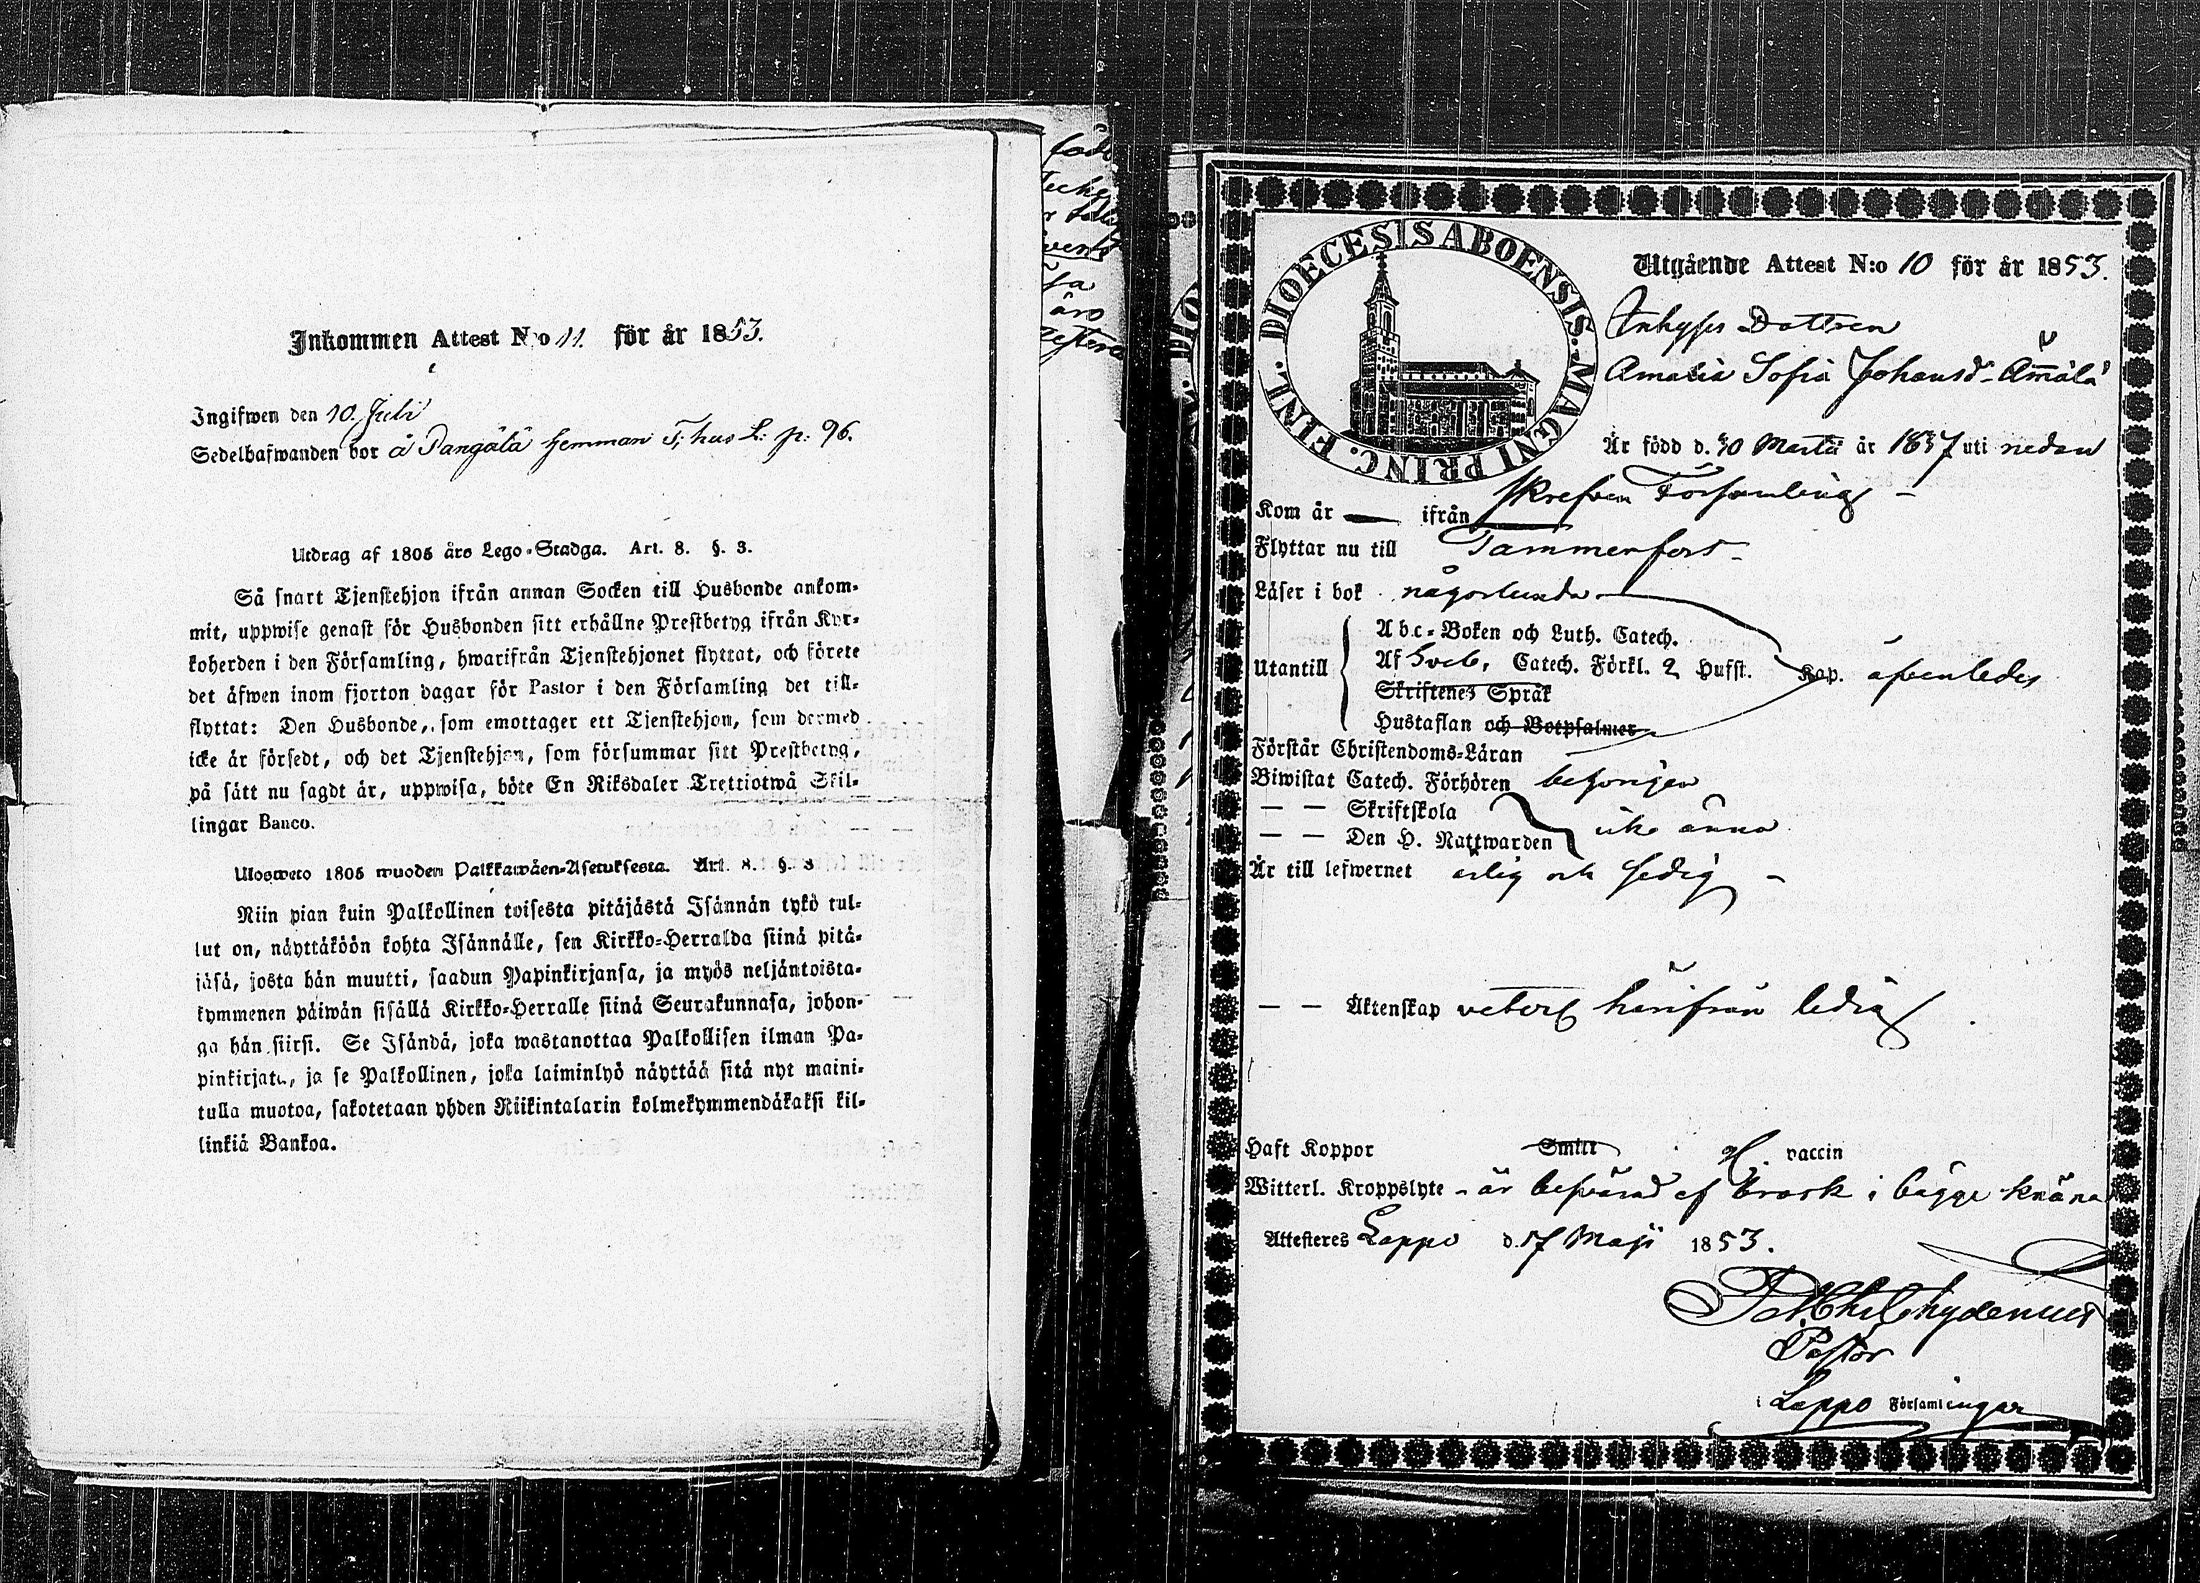 Inkommen Attest N:o 11. för år 1853.
Ingifwen den 10. Juli
Sedelhafwanden bor å Pangälä hemman T; hus L: p: 96.
Utdrag af 1805 års Lego-Stadga. Art. 8. §. 3.
Så snart Tjenstehjon ifrån annan Socken till Husbonde ankom-
mit, uppwise genast för Husbonden sitt erhållne Prestbetyg ifrån Kyr-
koherden i den Församling, hwarifrån Tjenstehjonet flyttat, och förete
det äfwen inom fjorton dagar för Pastor i den Församling det till-
flyttat: Den Husbonde, som emottager ett Tjenstehjon, som dermed
icke är försedt, och det Tjenstehjon, som försummar sitt Prestbetyg,
på sätt nu sagdt är, uppwisa, böte En Riksdaler Trettiotwå Skil-
lingar Banco.
Uloswето 1805 muoden Palkkawäen-Asetuksesta. Art. 8. §. 3
Niin pian kuin Palkollinen toisesta pitäjästä Isännän tykö tul-
lut on, näyttäköön kohta Isännälle, sen Kirkko-Herralda siinä pitä-
jäsä, josta hän muutti, saadun Papinkirjansa, ja myös neljäntoista-
kymmenen päiwän sisällä Kirkko-Herralle siinä Seurakunnasa, johon-
ga hän siirsi. Se Isändä, joka wastanottaa Palkollisen ilman Pa-
pinkirjata, ja se Palkollinen, joka laiminlyö näyttää sitä nyt maini-
tulla muotoa, sakotetaan yhden Riikintalarin kolmekymmendäkaksi kil-
linkiä Bankoa.
DIOECESIS ABOENSIS. MAGNI PRINC. FINL.
Utgående Attest N:o 10 för år 1853.
Inhyses Dottren
Amalia Sofia Johansd. Ammälä
Är född d. 30 Martii år 1837 uti nedan
skrefven Församling
Kom år — ifrån
Flyttar nu till Tammerfors
Läser i bok någorlunda
Abc-Boken och Luth. Catech.
Utantill Af Sveb. Catech. Förkl. 2 Hufst. Kap. äfvenledes
Skriftenes Språk
Hustaflan och Botpsalmer
Förstår Christendoms-Läran
Biwistat Catech. Förhören behörigen
— — Skriftskola
— — Den H. Nattwarden icke ännu
Är till lefwernet ärlig och sedig
— — Äktenskap veterl härifrån ledig
Haft Koppor Smitt vaccin
Witterl. Kroppslyte är besvärad af brosk i bägge knäna
Attesteres Lappo d. 17 Maji 1853.
Chydenius
Pastor
i Lappo Församlingar